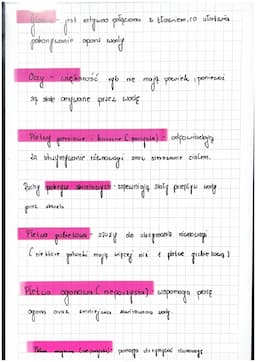 Głowa - jest sztywno połączona z tłowiem, co ułatwia
pokonywanie oporu wody
Oczy - większość ryb nie mają powiek, ponieważ
są stale omywane przez wodę
Płetwy piersiowe i brzuszne (parzyste) - odpowiadają
za utrzymywanie równowagi oraz sterowanie ciałem.
Ruchy pokryw skrzelowych - zapewniają stały przepływ wody
przez skrzela
Płetwa grzbietowa - służy do utrzymania równowagi
(niektóre gatunki mają więcej niż 1 płetwę grzbietową)
Płetwa ogonowa (nieparzysta) wspomaga pracę
ogona oraz zmniejsza zawirowania wody.
Płetwa (nieparzysta) - pomaga utrzymywać równowagę